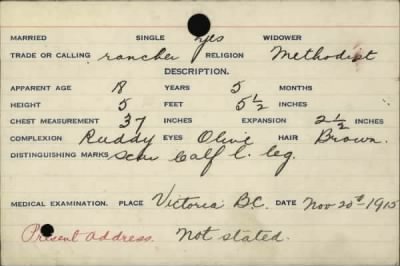 MARRIED SINGLE yes WIDOWER
TRADE OR CALLING rancher RELIGION Methodist
DESCRIPTION.
APPARENT AGE 18 YEARS 5 MONTHS
HEIGHT 5 FEET 5 1/2 INCHES
CHEST MEASUREMENT 37 INCHES EXPANSION 2 1/2 INCHES
COMPLEXION Ruddy EYES Olive HAIR Brown.
DISTINGUISHING MARKS Scar Calf l. leg.
MEDICAL EXAMINATION. PLACE Victoria B.C. DATE Nov 20th 1915
Present address. Not stated.